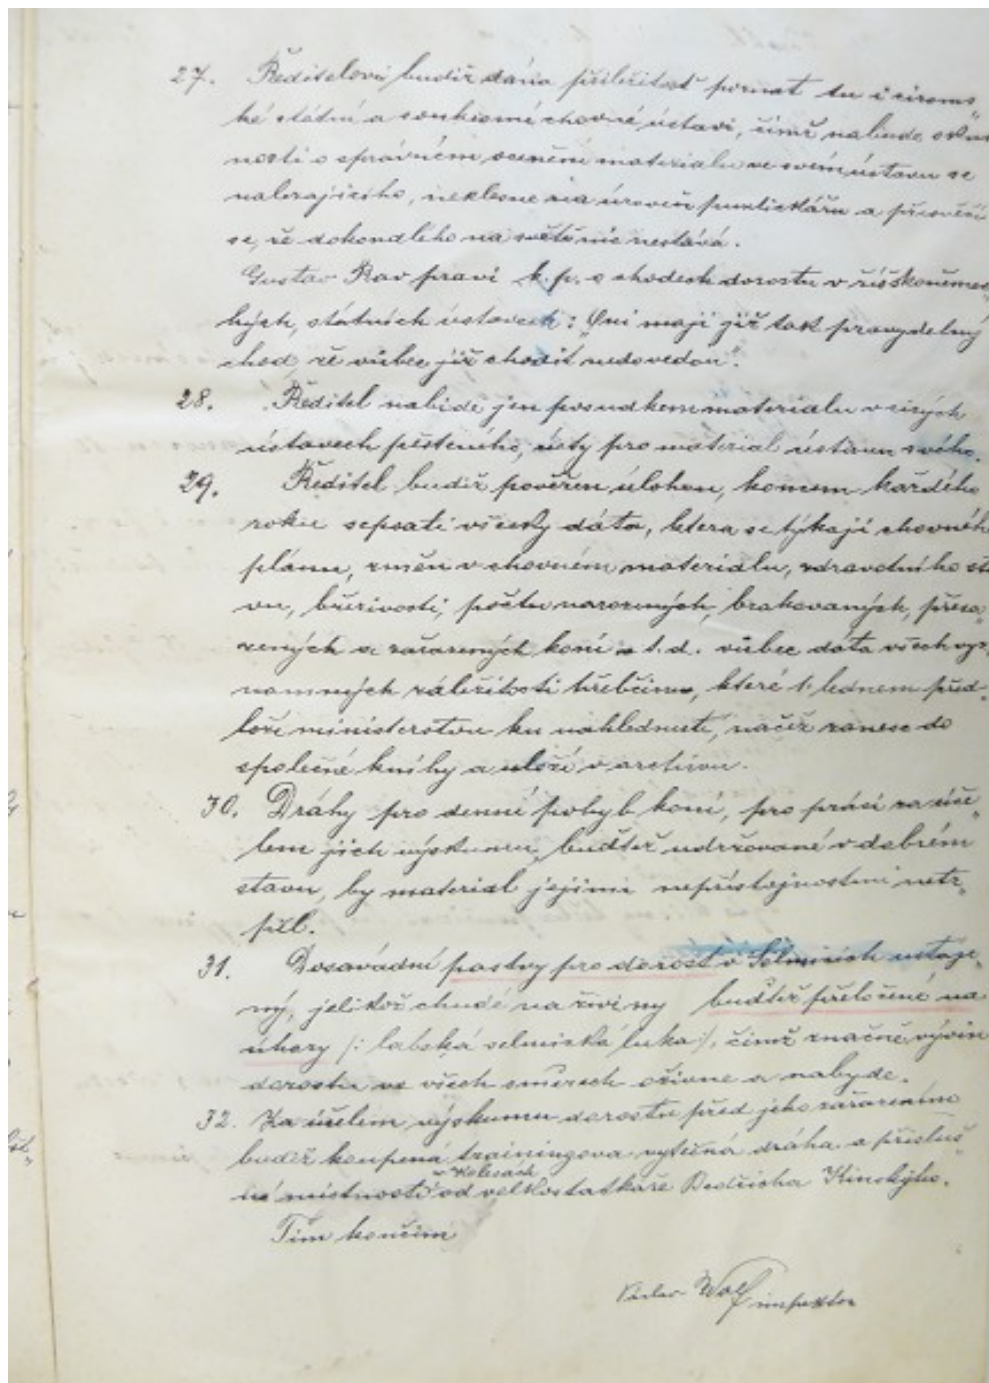 27. Řediteloví budiž dána příležitosť poznat tu i cizoms„
ké státní a soukromé chovné ústavi, čímž nabude
nosti o správném ocenění materialu ve svém ústavu se
nalezajícího, neklesne na úroveň puntičkářu a přesvěčí
se, že dokonalého na světě nic nestává.
Gustav Rav praví k.p. o chodech dorostu v říšskoněmec„
kých, státních ústavech: „Oni mají již tak pravydelný
chod, že vůbec již chodit nedovedou“.
28. Ředitel nabíde jen posudkem materialu v cizých
ústavech pěsteného, úcty pro material ústavu svého.
29. Ředitel budiž pověřen úlohou, koncem každého
roku sepsati všecky dáta, ktera se týkají chovného
plánu, změn v chovném materialu, zdravotního sta
vu, březivosti, počtu narozených, brakovaných, přesa„
zených a zařazených koní a t.d. vůbec dáta všech vyz„
namných záležitostí hřebčína, které 1. lednem před„
loží ministerstvu ku nahlednutí, načež zanese do
společné knihy a uloží v archivu.
30. Dráhy pro denní pohyb koní, pro práci za úče„
lem jich výzkumu, buďtež udržované v dobrém
stavu, by material jejimi nepřístojnostmi netr„
pěl.
31. Dosavádní pastvy pro dorost v Selmicích ustáje„
ný, jelikož chudé na živiny buďtež přeložené na
úhory /: labská selmická luka :/, čímž značně vývin
dorostu ve všech směrech oživne a nabyde.
32. Za účelem výzkumu dorostu před jeho zařazením
budiž koupená trainingova vytečná dráha a přísluš
né místnosti v Kolesách od velkostatkáře Bedřicha Kinskýho.
Tím končím
Václav Wolf inspektor